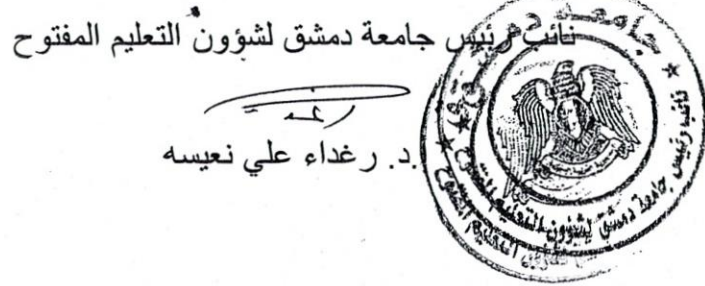 نائب رئيس جامعة دمشق لشؤون التعليم المفتوح
د. رغداء علي نعيسه
جامعة دمشق
نائب رئيس جامعة دمشق لشؤون التعليم المفتوح